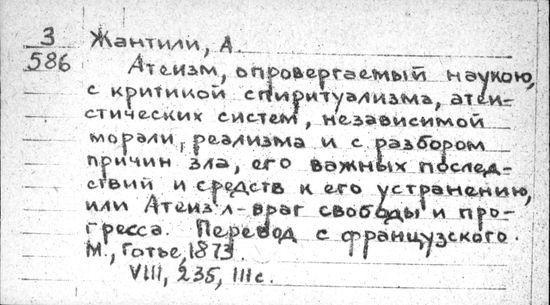 З
586
Жантили, А.
Атеизм, опровергаемый наукою,
с критикой спиритуализма, атеи-
стических систем, независимой
морали, реализма и с разбором
причин зла, его важных послед-
ствий и средств к его устранению,
или Атеизм-враг свободы и про-
гресса. Перевод с французского.
М., Готье, 1873.
VIII, 235, III с.